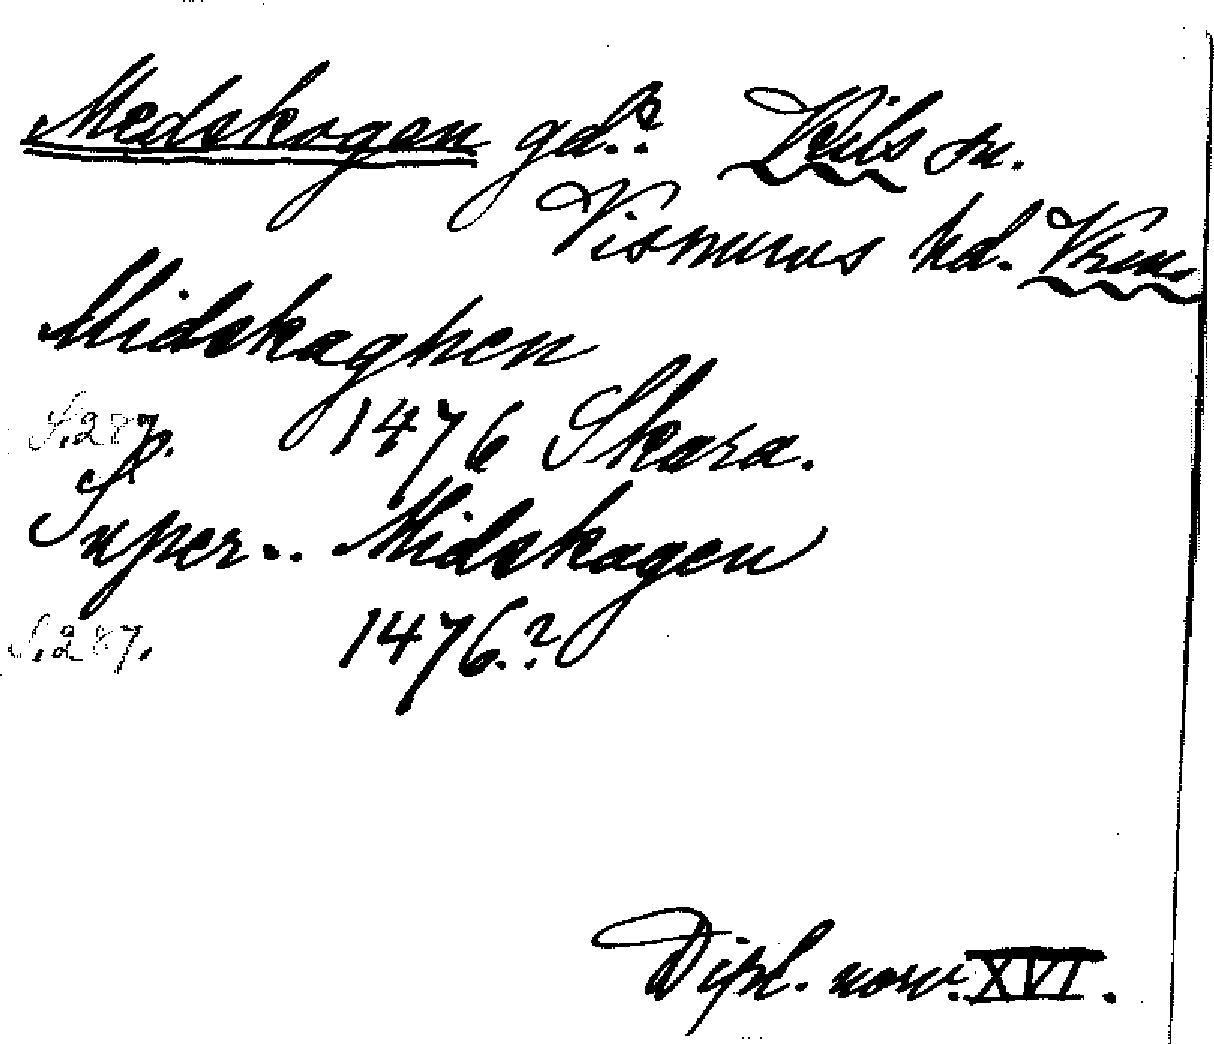 Medskogen gd.? Kils sn.
Visnums hd. Vrm.
Midskaghen
S. 287. 1476 Skara.
Super .. Midskagen
S. 287. 1476.?
Dipl. norv. XVI.